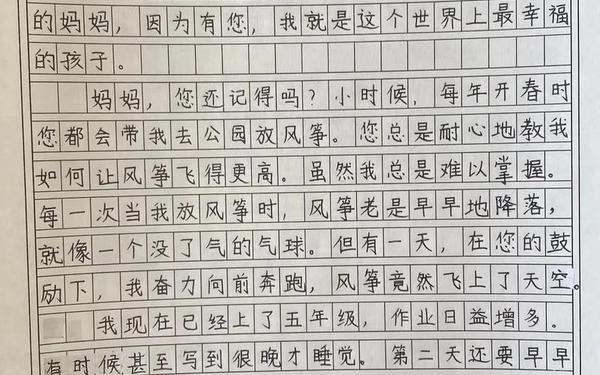 的妈妈，因为有您，我就是这个世界上最幸福
的孩子。
妈妈，您还记得吗？小时候，每年开春时
您都会带我去公园放风筝。您总是耐心地教我
如何让风筝飞得更高。虽然我总是难以掌握。
每一次当我放风筝时，风筝老是早早地降落，
就像一个没了气的气球。但有一天，在您的鼓
励下，我奋力向前奔跑，风筝竟然飞上了天空。
我现在已经上了五年级，作业日益增多。
有时候甚至写到很晚才睡觉。第二天还要早早